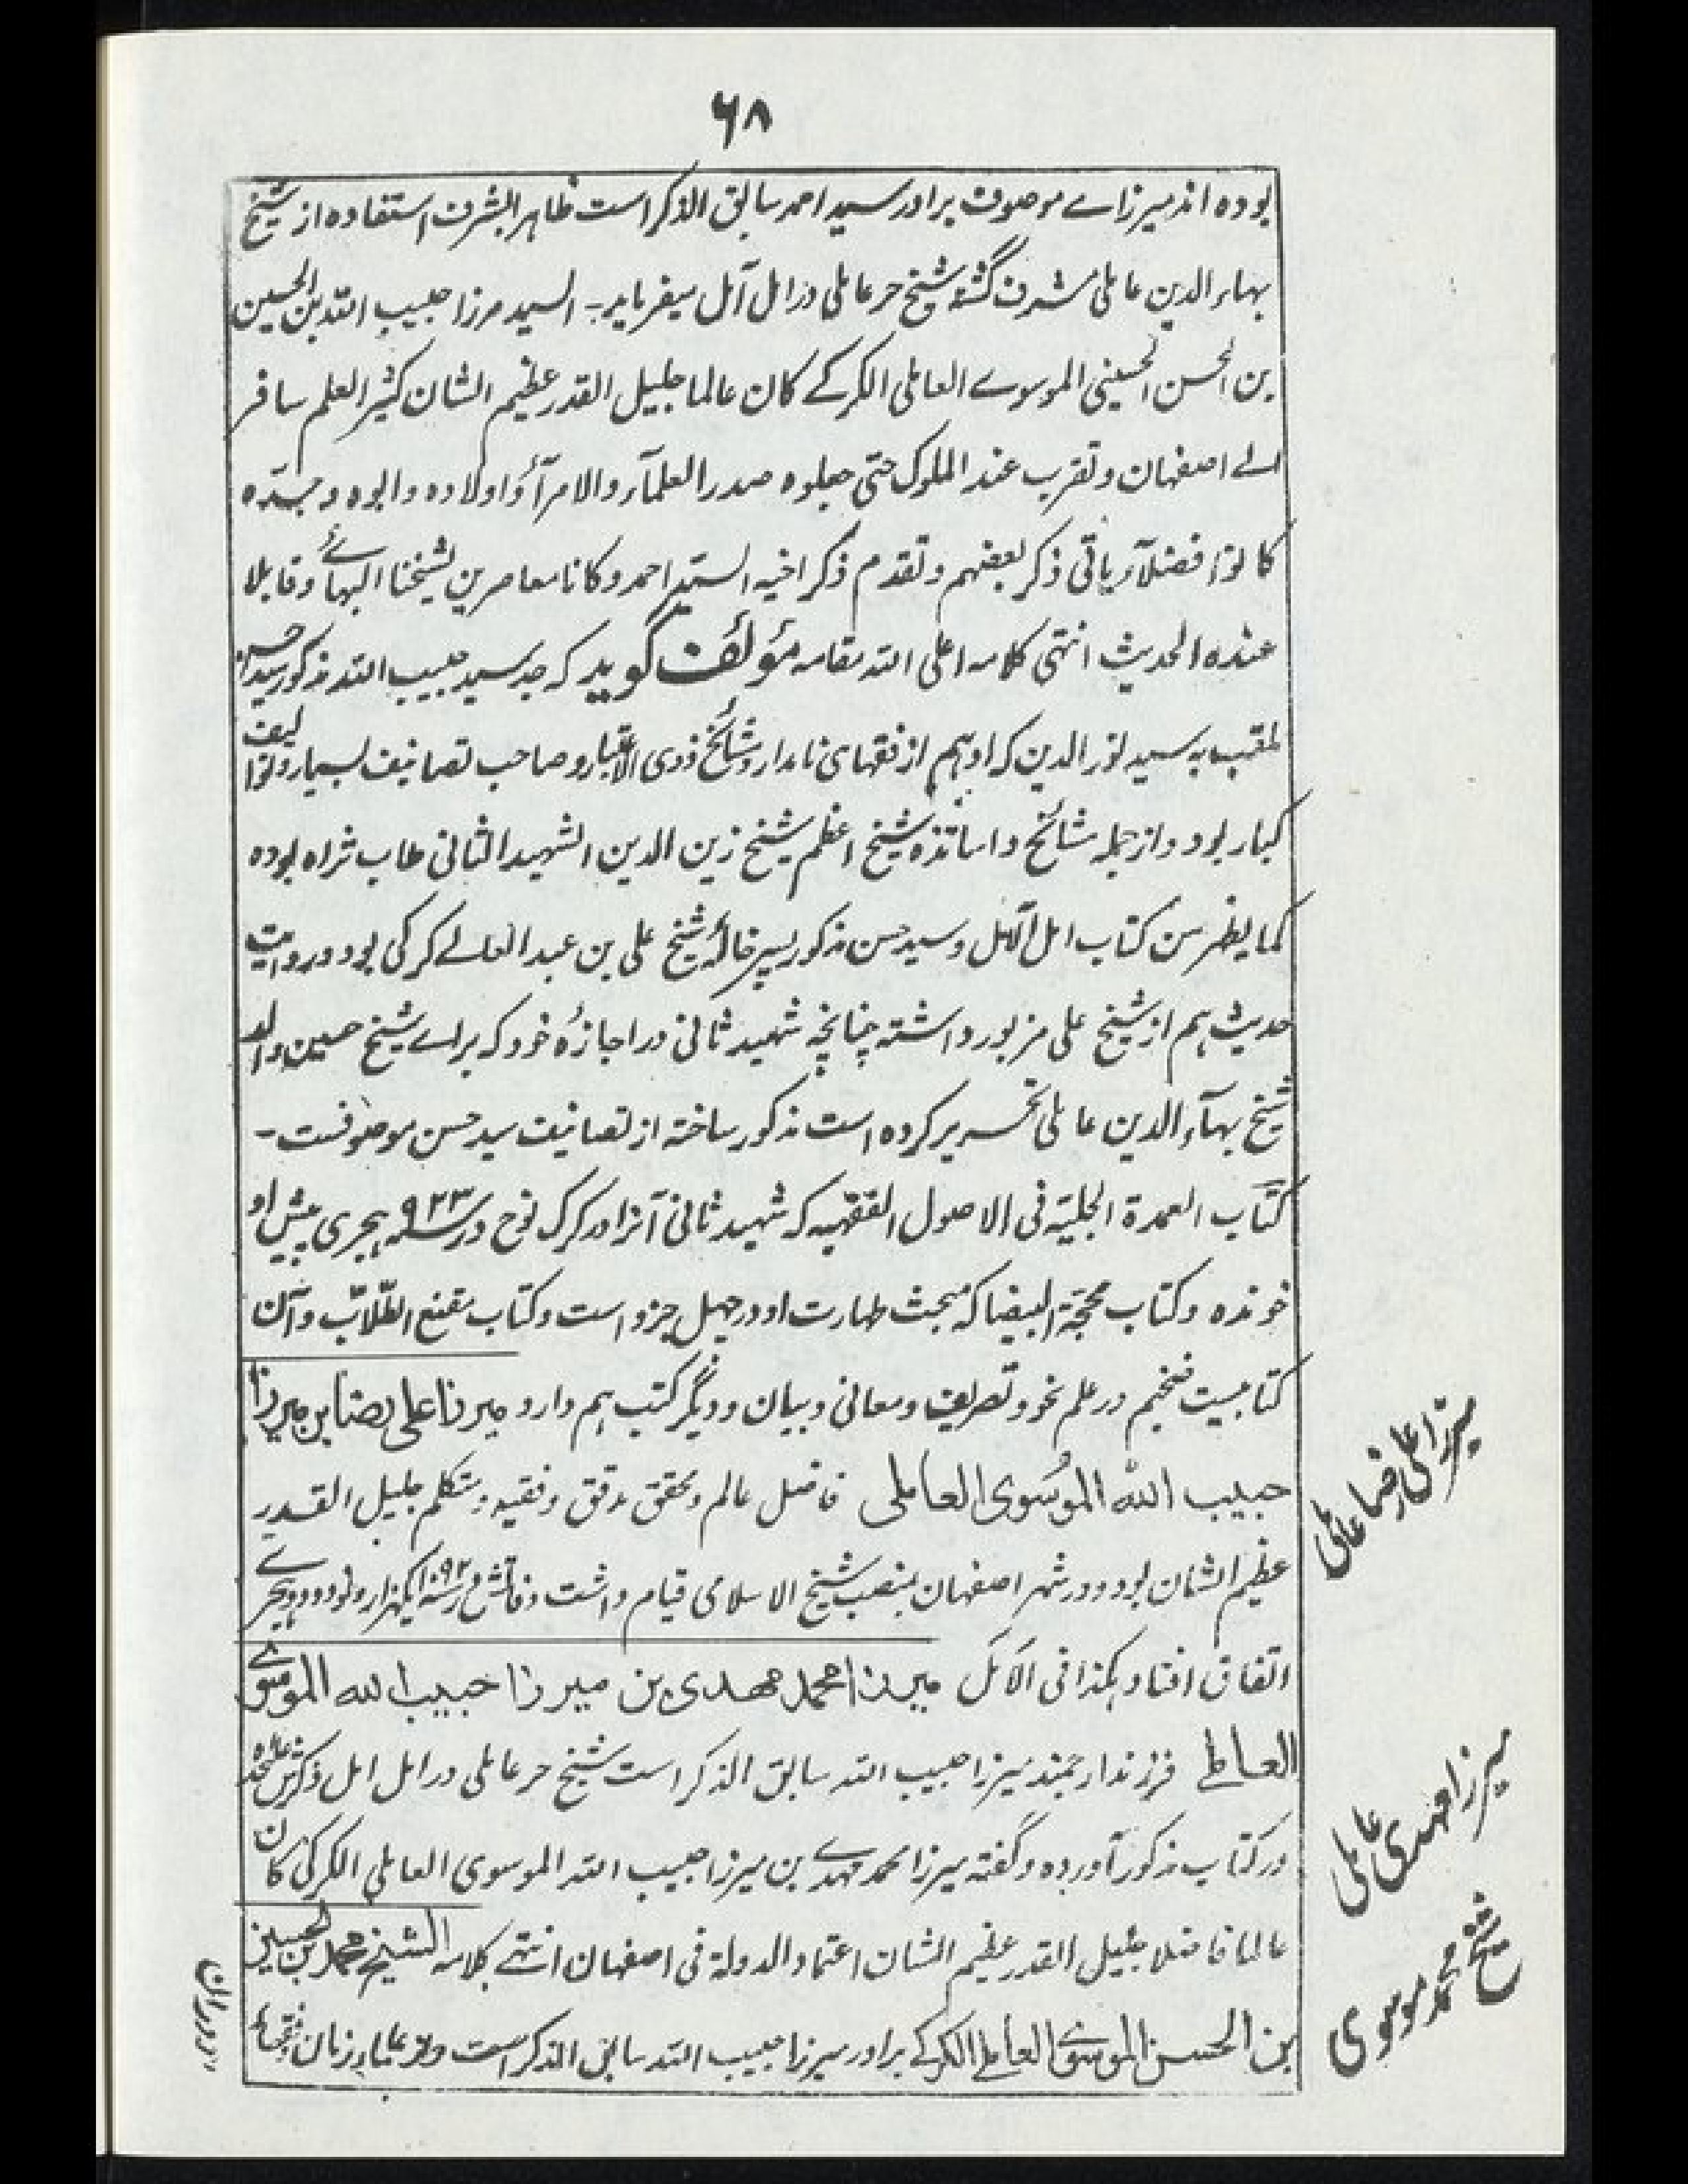 ۶۸
بوده اند میرزاے موصوف برادر سید احمد سابق الذکر است ظاہرا بشرف استفاده از شیخ
بهاء الدین عاملی مشرف گشته شیخ حر عاملی در امل آمل میفرماید۔ السید مرزا حبیب الله بن الحسین
بن الحسن الحسینی الموسوے العاملی الکرکے کان عالما جلیل القدر عظیم الشان کثیر العلم سافر
الے اصفهان وتقرب عند الملوک حتی جعلوه صدر العلمآء والامرآء واولاده وابوه وجدّه
کانوا فضلآء یاتی ذکر بعضهم وتقدم ذکر اخیه السیّد احمد وکانا معاصرین لشیخنا البهائے وقابلا
عنده الحدیث انتهی کلامه اعلی الله مقامه مؤلف گوید که جد سید حبیب الله مذکور سید حسن
لمقب به سید نور الدین که او ہم از فقهای نامدار ومشائخ ذوی الاعتبار وصاحب تصانیف بسیار وتوالیف
کبار بود واز جمله مشائخ واساتذه شیخ اعظم شیخ زین الدین الشهید الثانی طاب ثراه بوده
کما یظهر من کتاب امل الآمل وسید حسن مذکور پسر خالهٔ شیخ علی بن عبد العالے کرکی بود وروایت
حدیث ہم از شیخ علی مزبور داشته چنانچه شهید ثانی در اجازهٔ خود که براے شیخ حسین والد
شیخ بهآء الدین عاملی تحریر کرده است مذکور ساخته از تصانیف سید حسن موصوفست ۔
کتاب العمدة الجلیة فی الاصول الفقهیه که شهید ثانی آنرا در کرک نوح در سنه ۹۳۳ ہجری پیش او
خونده وکتاب محجة البیضا که مبحث طهارت او در چهل جزو است وکتاب مقنع الطلّاب وآن
کتابیست ضخیم در علم نحو وتصریف ومعانی وبیان ودیگر کتب ہم دارد میرزا علی رضا بن میرزا
حبیب الله الموسوی العاملی فاضل عالم ومحقق مدقق وفقیه ومتکلم جلیل القدر
عظیم الشان بود ودر شهر اصفهان بمنصب شیخ الاسلامی قیام داشت وفاتش در سنه یکهزار ونود ودو ہجرے
اتفاق افتاد ہکذا فی الامل میرزا محمد مهدی بن میرزا حبیب الله الموسوے
العاملے فرزند ارجمند میرزا حبیب الله سابق الذکر است شیخ حر عاملی در امل امل ذکرش علیحده
در کتاب مذکور آورده وگفته میرزا محمد مهدے بن میرزا حبیب الله الموسوی العاملی الکرکی کان
عالما فاضلا جلیل القدر عظیم الشان اعتماد الدولة فی اصفهان انتهے کلامه الشیخ محمد بن الحسین
بن الحسن الموسوی العاملے الکرکے برادر میرزا حبیب الله سابق الذکر است
میرزا علی رضا عاملی
میرزا مهدی عاملی
شیخ محمد موسوی